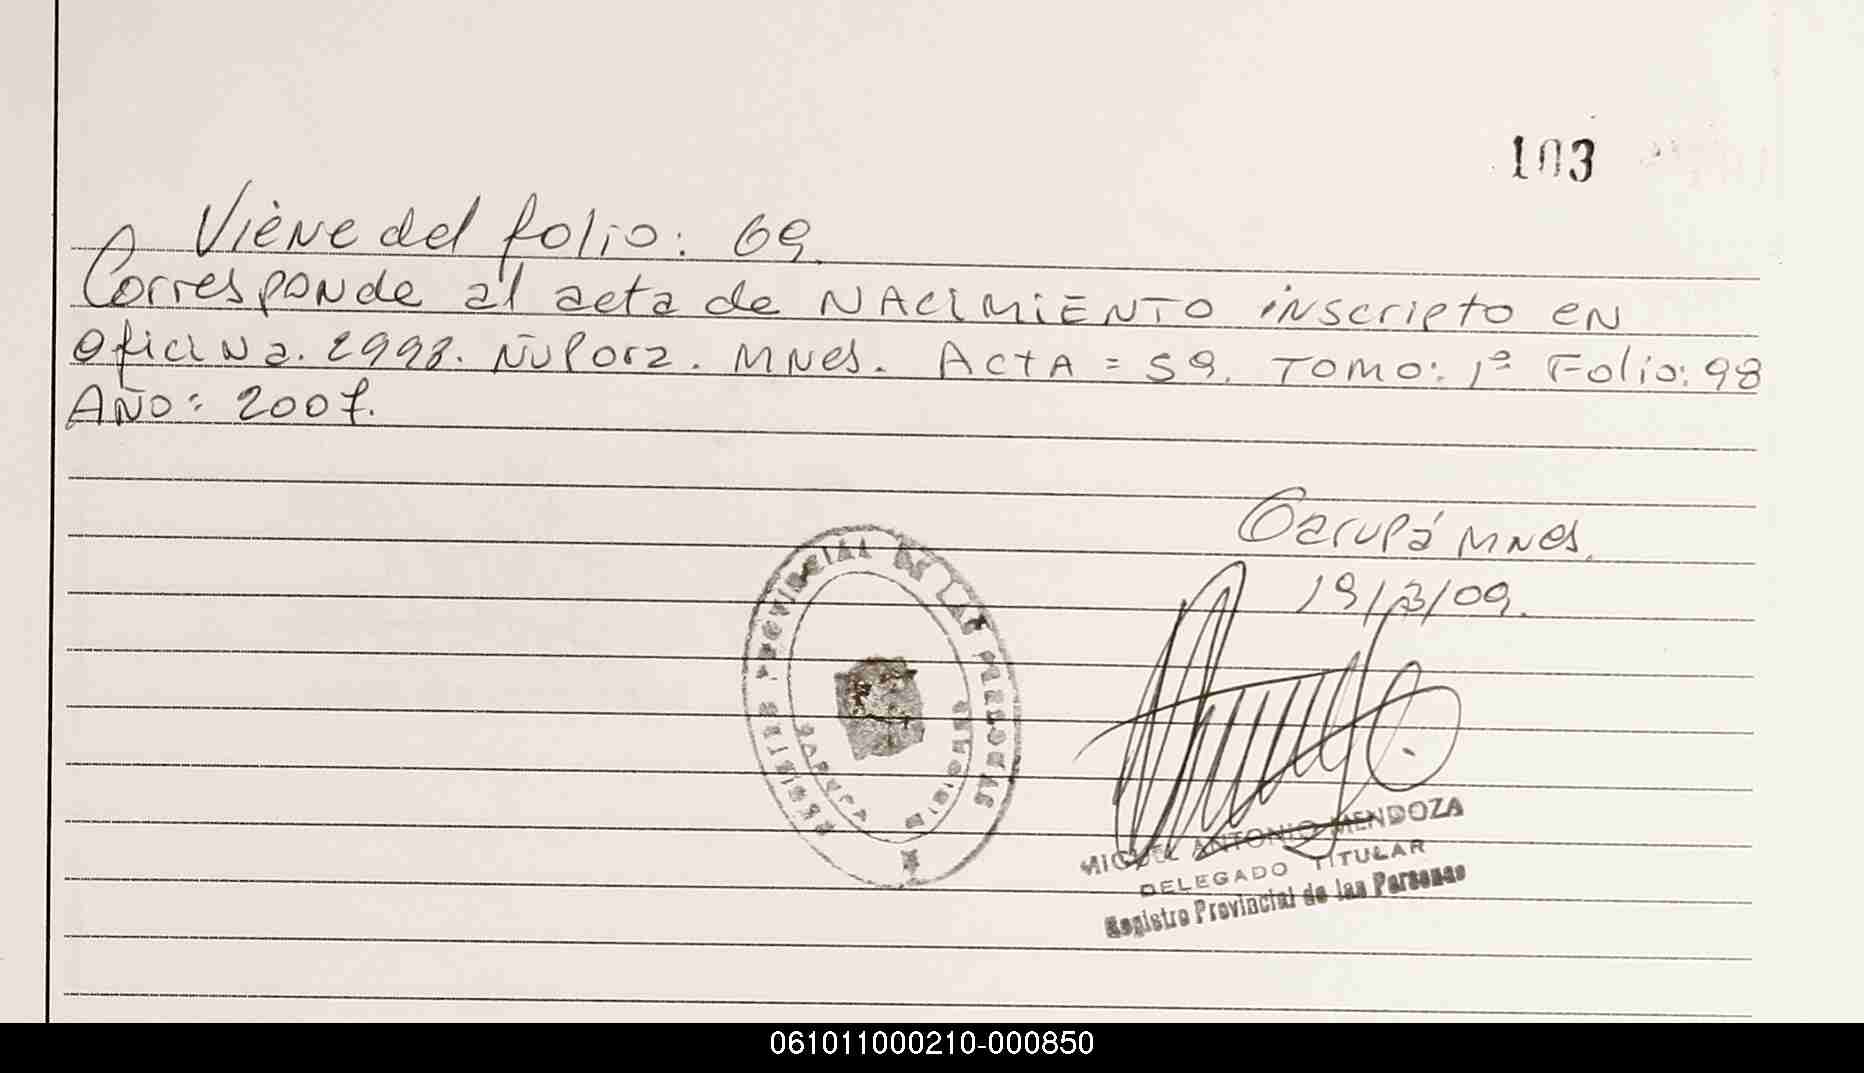 103
Viene del folio: 69.
Corresponde al acta de NACIMIENTO inscripto en
Oficina. 2998. Ñuporá. MNES. ACTA = 59. TOMO: 1º Folio: 98
AÑO: 2007.
Garupá MNES.
19/3/09.
REGISTRO PROVINCIAL DE LAS PERSONAS
GARUPA
MIGUEL ANTONIO MENDOZA
DELEGADO TITULAR
Registro Provincial de las Personas
061011000210-000850